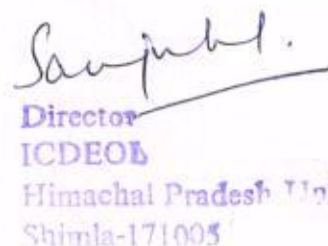 Director
ICDEOL
Himachal Pradesh
Shimla-171005